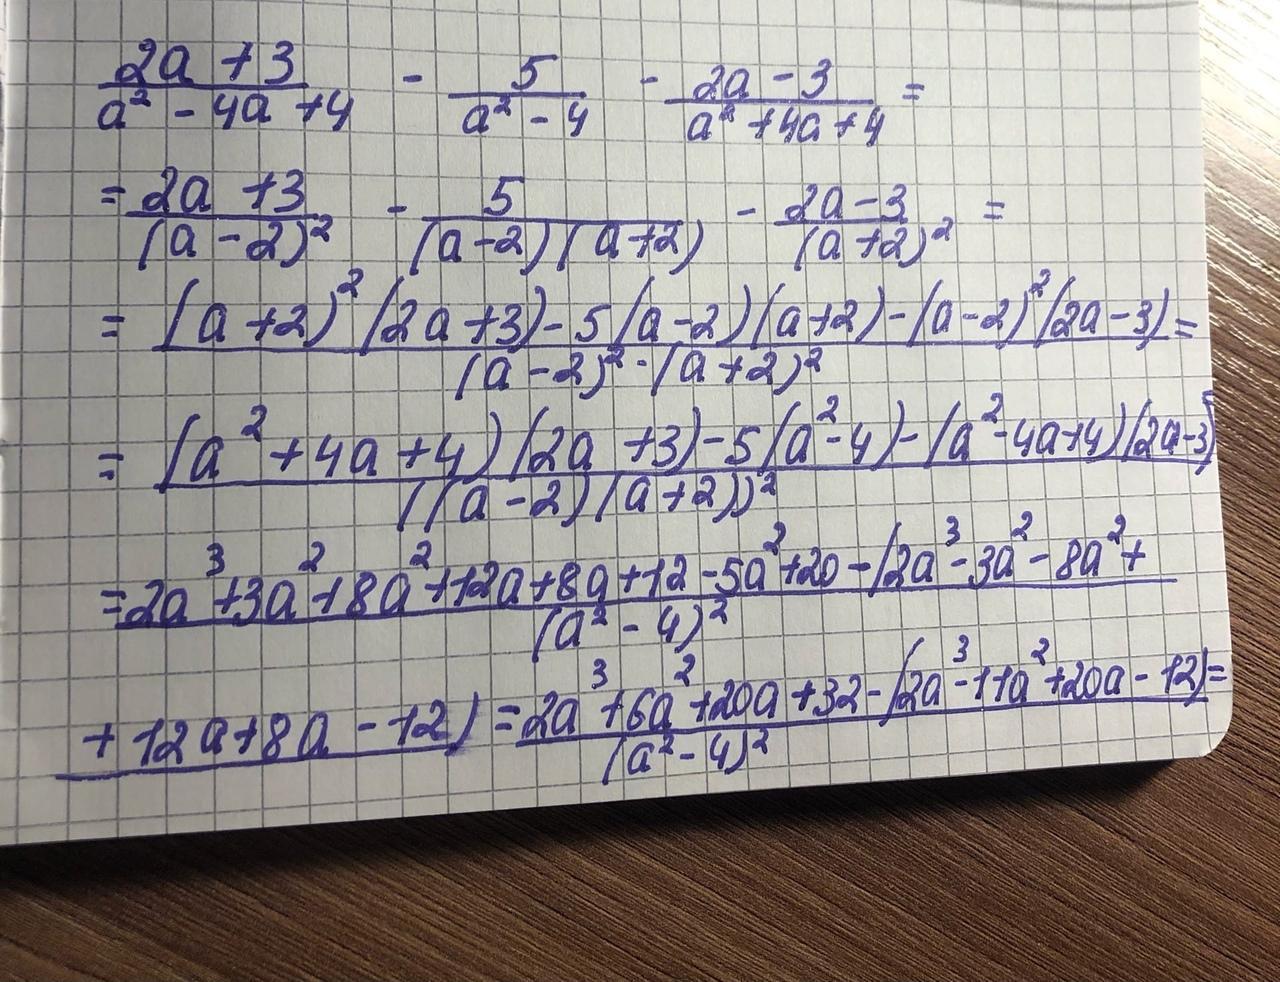 (2a + 3)/(a² - 4a + 4) - 5/(a² - 4) - (2a - 3)/(a² + 4a + 4) =
= (2a + 3)/(a - 2)² - 5/((a - 2)(a + 2)) - (2a - 3)/(a + 2)² =
= ((a + 2)² (2a + 3) - 5(a - 2)(a + 2) - (a - 2)² (2a - 3))/((a - 2)² · (a + 2)²) =
= ((a² + 4a + 4)(2a + 3) - 5(a² - 4) - (a² - 4a + 4)(2a - 3))/((a - 2)(a + 2))²
= (2a³ + 3a² + 8a² + 12a + 8a + 12 - 5a² + 20 - (2a³ - 3a² - 8a² +)/(a² - 4)²
+ 12a + 8a - 12) = (2a³ + 6a² + 20a + 32 - (2a³ - 11a² + 20a - 12))/(a² - 4)² =